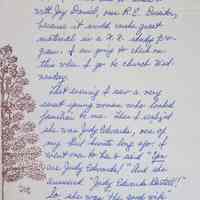 with Joy Daniel, our R.E. Director,
because it would make great
material in a S.S. study pro-
gram. I am going to check on
this when I go to church Wed-
nesday.
That evening I saw a very
sweet young woman who looked
familiar to me. Then I
she was Judy Edwards, one of
my
went to her & said "You
are Judy Edwards!" And she
answered "Judy Edwards
So she was the